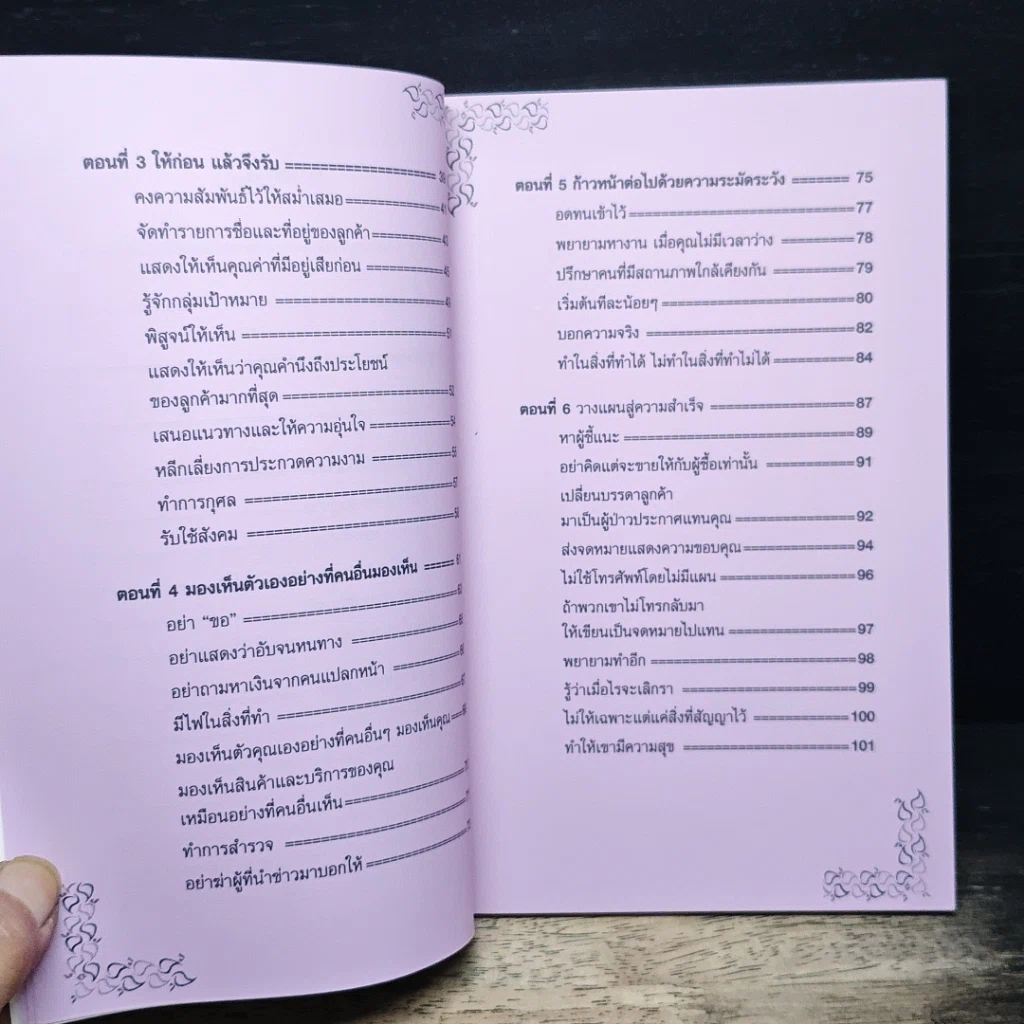 ตอนที่ 3 ให้ก่อน แล้วจึงรับ ================== 39
คงความสัมพันธ์ไว้ให้สม่ำเสมอ============ 41
จัดทำรายการชื่อและที่อยู่ของลูกค้า=========
แสดงให้เห็นคุณค่าที่มีอยู่เสียก่อน ==========
รู้จักกลุ่มเป้าหมาย ====================
พิสูจน์ให้เห็น ======================== 51
แสดงให้เห็นว่าคุณคำนึงถึงประโยชน์
ของลูกค้ามากที่สุด =================== 52
เสนอแนวทางและให้ความอุ่นใจ ========== 54
หลีกเลี่ยงการประกวดความงาม ==========
ทำการกุศล ======================== 57
รับใช้สังคม ======================== 58
ตอนที่ 4 มองเห็นตัวเองอย่างที่คนอื่นมองเห็น ===== 61
อย่า “ขอ” =========================
อย่าแสดงว่าอับจนหนทาง ==============
อย่าถามหาเงินจากคนแปลกหน้า =========
มีไฟในสิ่งที่ทำ =====================
มองเห็นตัวคุณเองอย่างที่คนอื่นๆ มองเห็นคุณ==
มองเห็นสินค้าและบริการของคุณ
เหมือนอย่างที่คนอื่นเห็น===============
ทำการสำรวจ =====================
อย่าฆ่าผู้ที่นำข่าวมาบอกให้ =============
ตอนที่ 5 ก้าวหน้าต่อไปด้วยความระมัดระวัง ======= 75
อดทนเข้าไว้ =========================== 77
พยายามหางาน เมื่อคุณไม่มีเวลาว่าง ========= 78
ปรึกษาคนที่มีสถานภาพใกล้เคียงกัน ========== 79
เริ่มต้นทีละน้อยๆ ====================== 80
บอกความจริง ========================= 82
ทำในสิ่งที่ทำได้ ไม่ทำในสิ่งที่ทำไม่ได้ ========= 84
ตอนที่ 6 วางแผนสู่ความสำเร็จ ================ 87
หาผู้ชี้แนะ =========================== 89
อย่าคิดแต่จะขายให้กับผู้ซื้อเท่านั้น ========== 91
เปลี่ยนบรรดาลูกค้า
มาเป็นผู้ป่าวประกาศแทนคุณ ============== 92
ส่งจดหมายแสดงความขอบคุณ============= 94
ไม่ใช้โทรศัพท์โดยไม่มีแผน ================ 96
ถ้าพวกเขาไม่โทรกลับมา
ให้เขียนเป็นจดหมายไปแทน =============== 97
พยายามทำอีก ======================== 98
รู้ว่าเมื่อไรจะเลิกรา ===================== 99
ไม่ให้เฉพาะแต่แค่สิ่งที่สัญญาไว้ =========== 100
ทำให้เขามีความสุข =================== 101